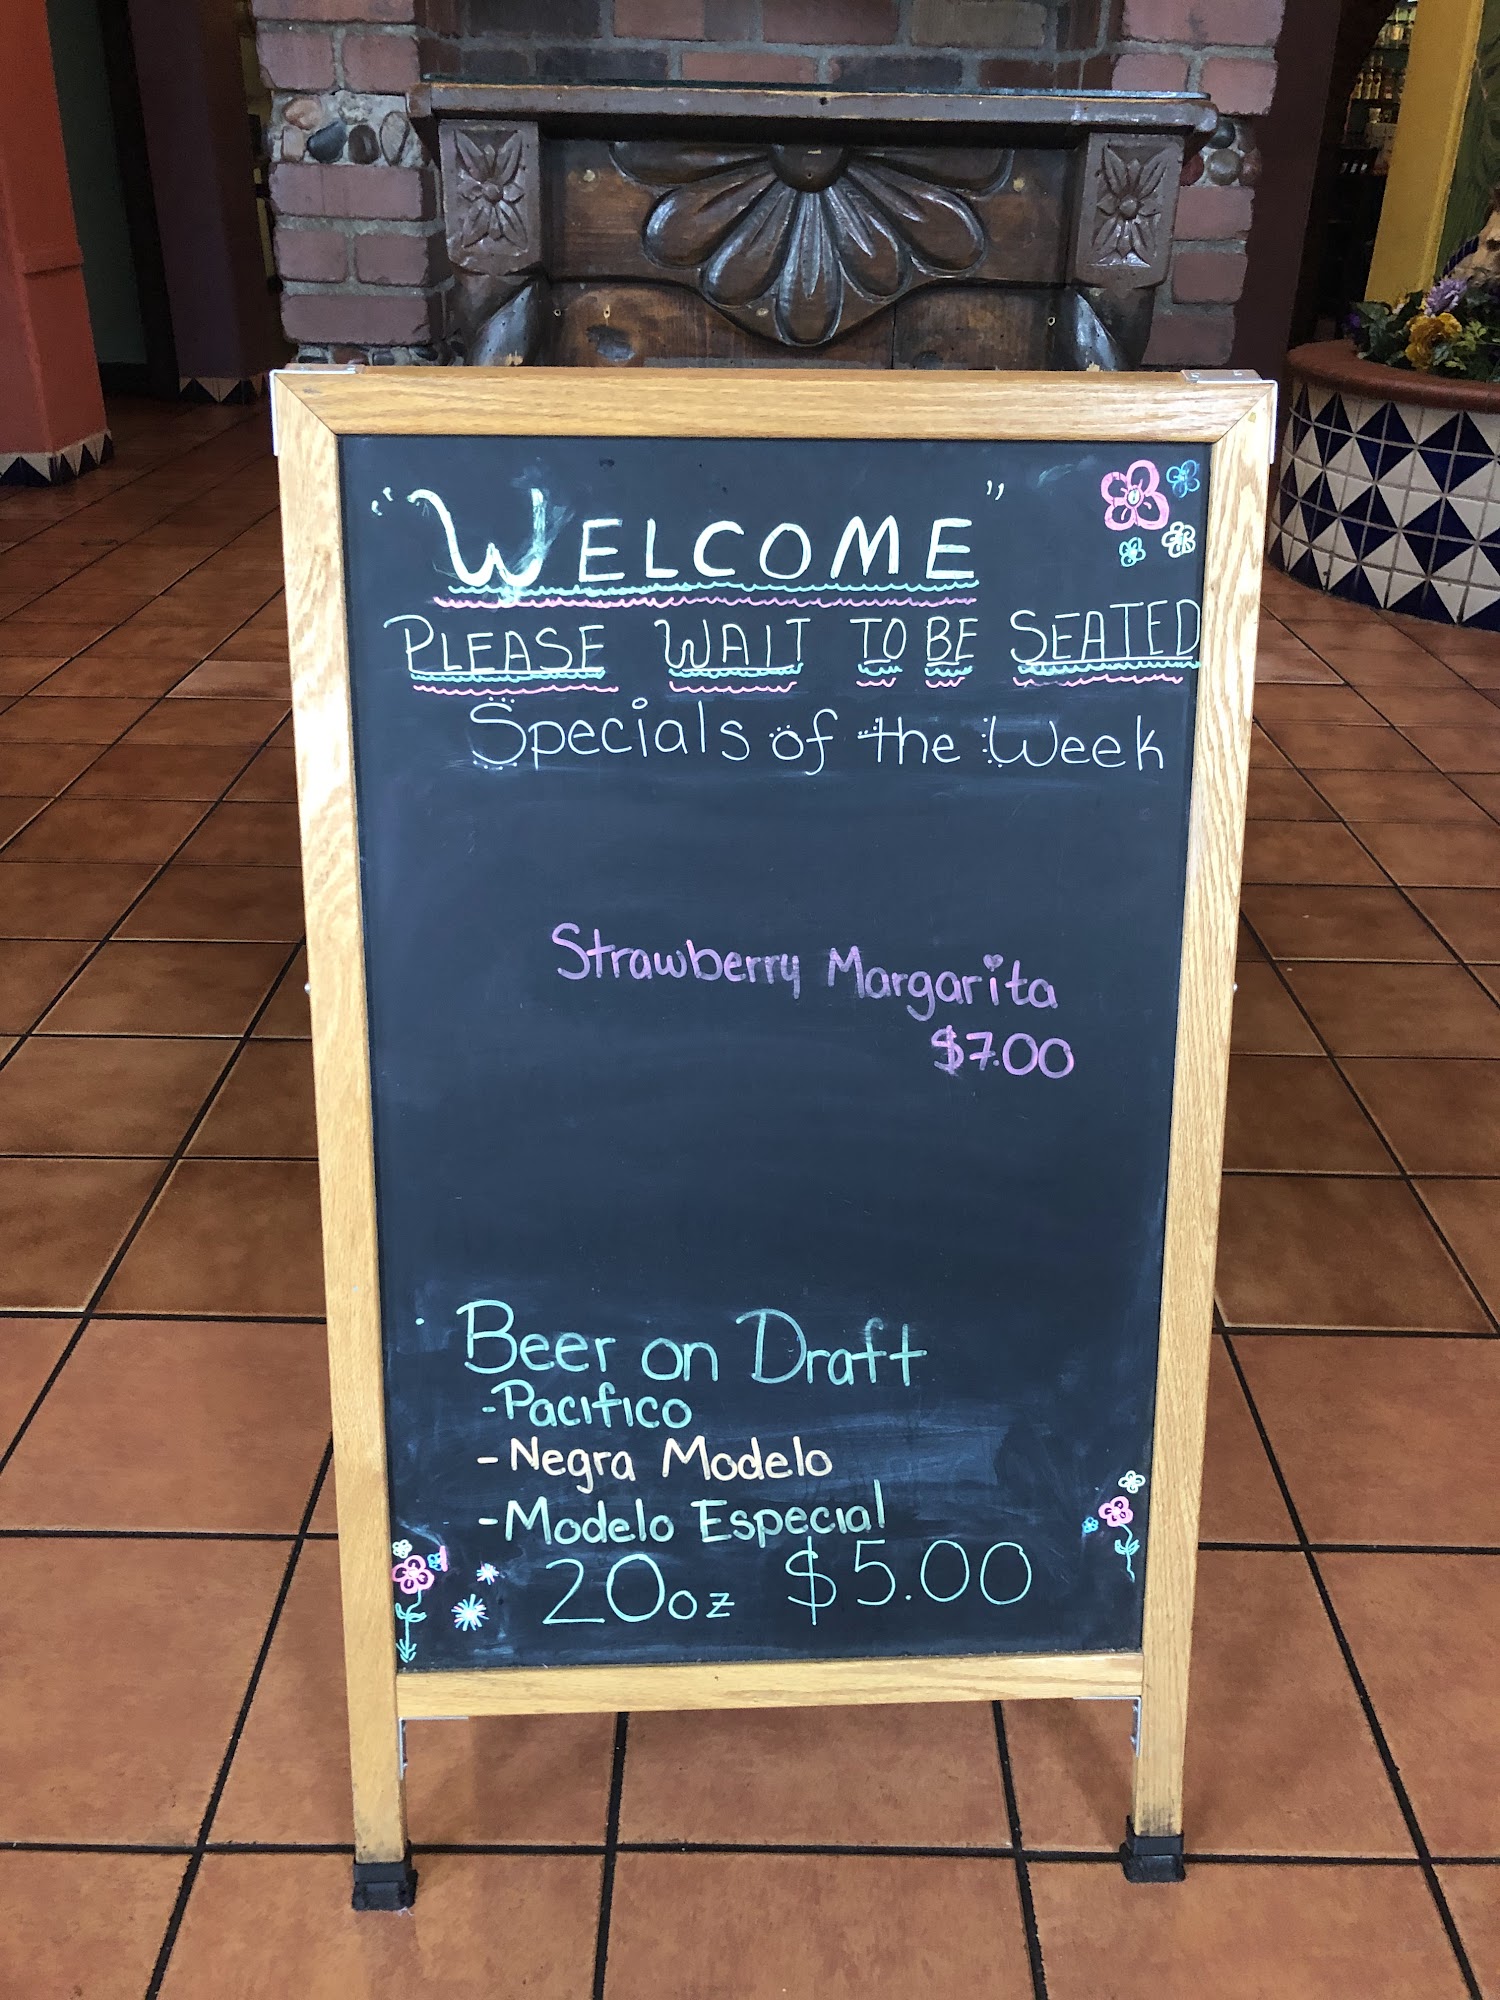 "WELCOME"
PLEASE WAIT TO BE SEATED
Specials of the Week
Strawberry Margarita
$7.00
Beer on Draft
-Pacifico
-Negra Modelo
-Modelo Especial
20oz $5.00